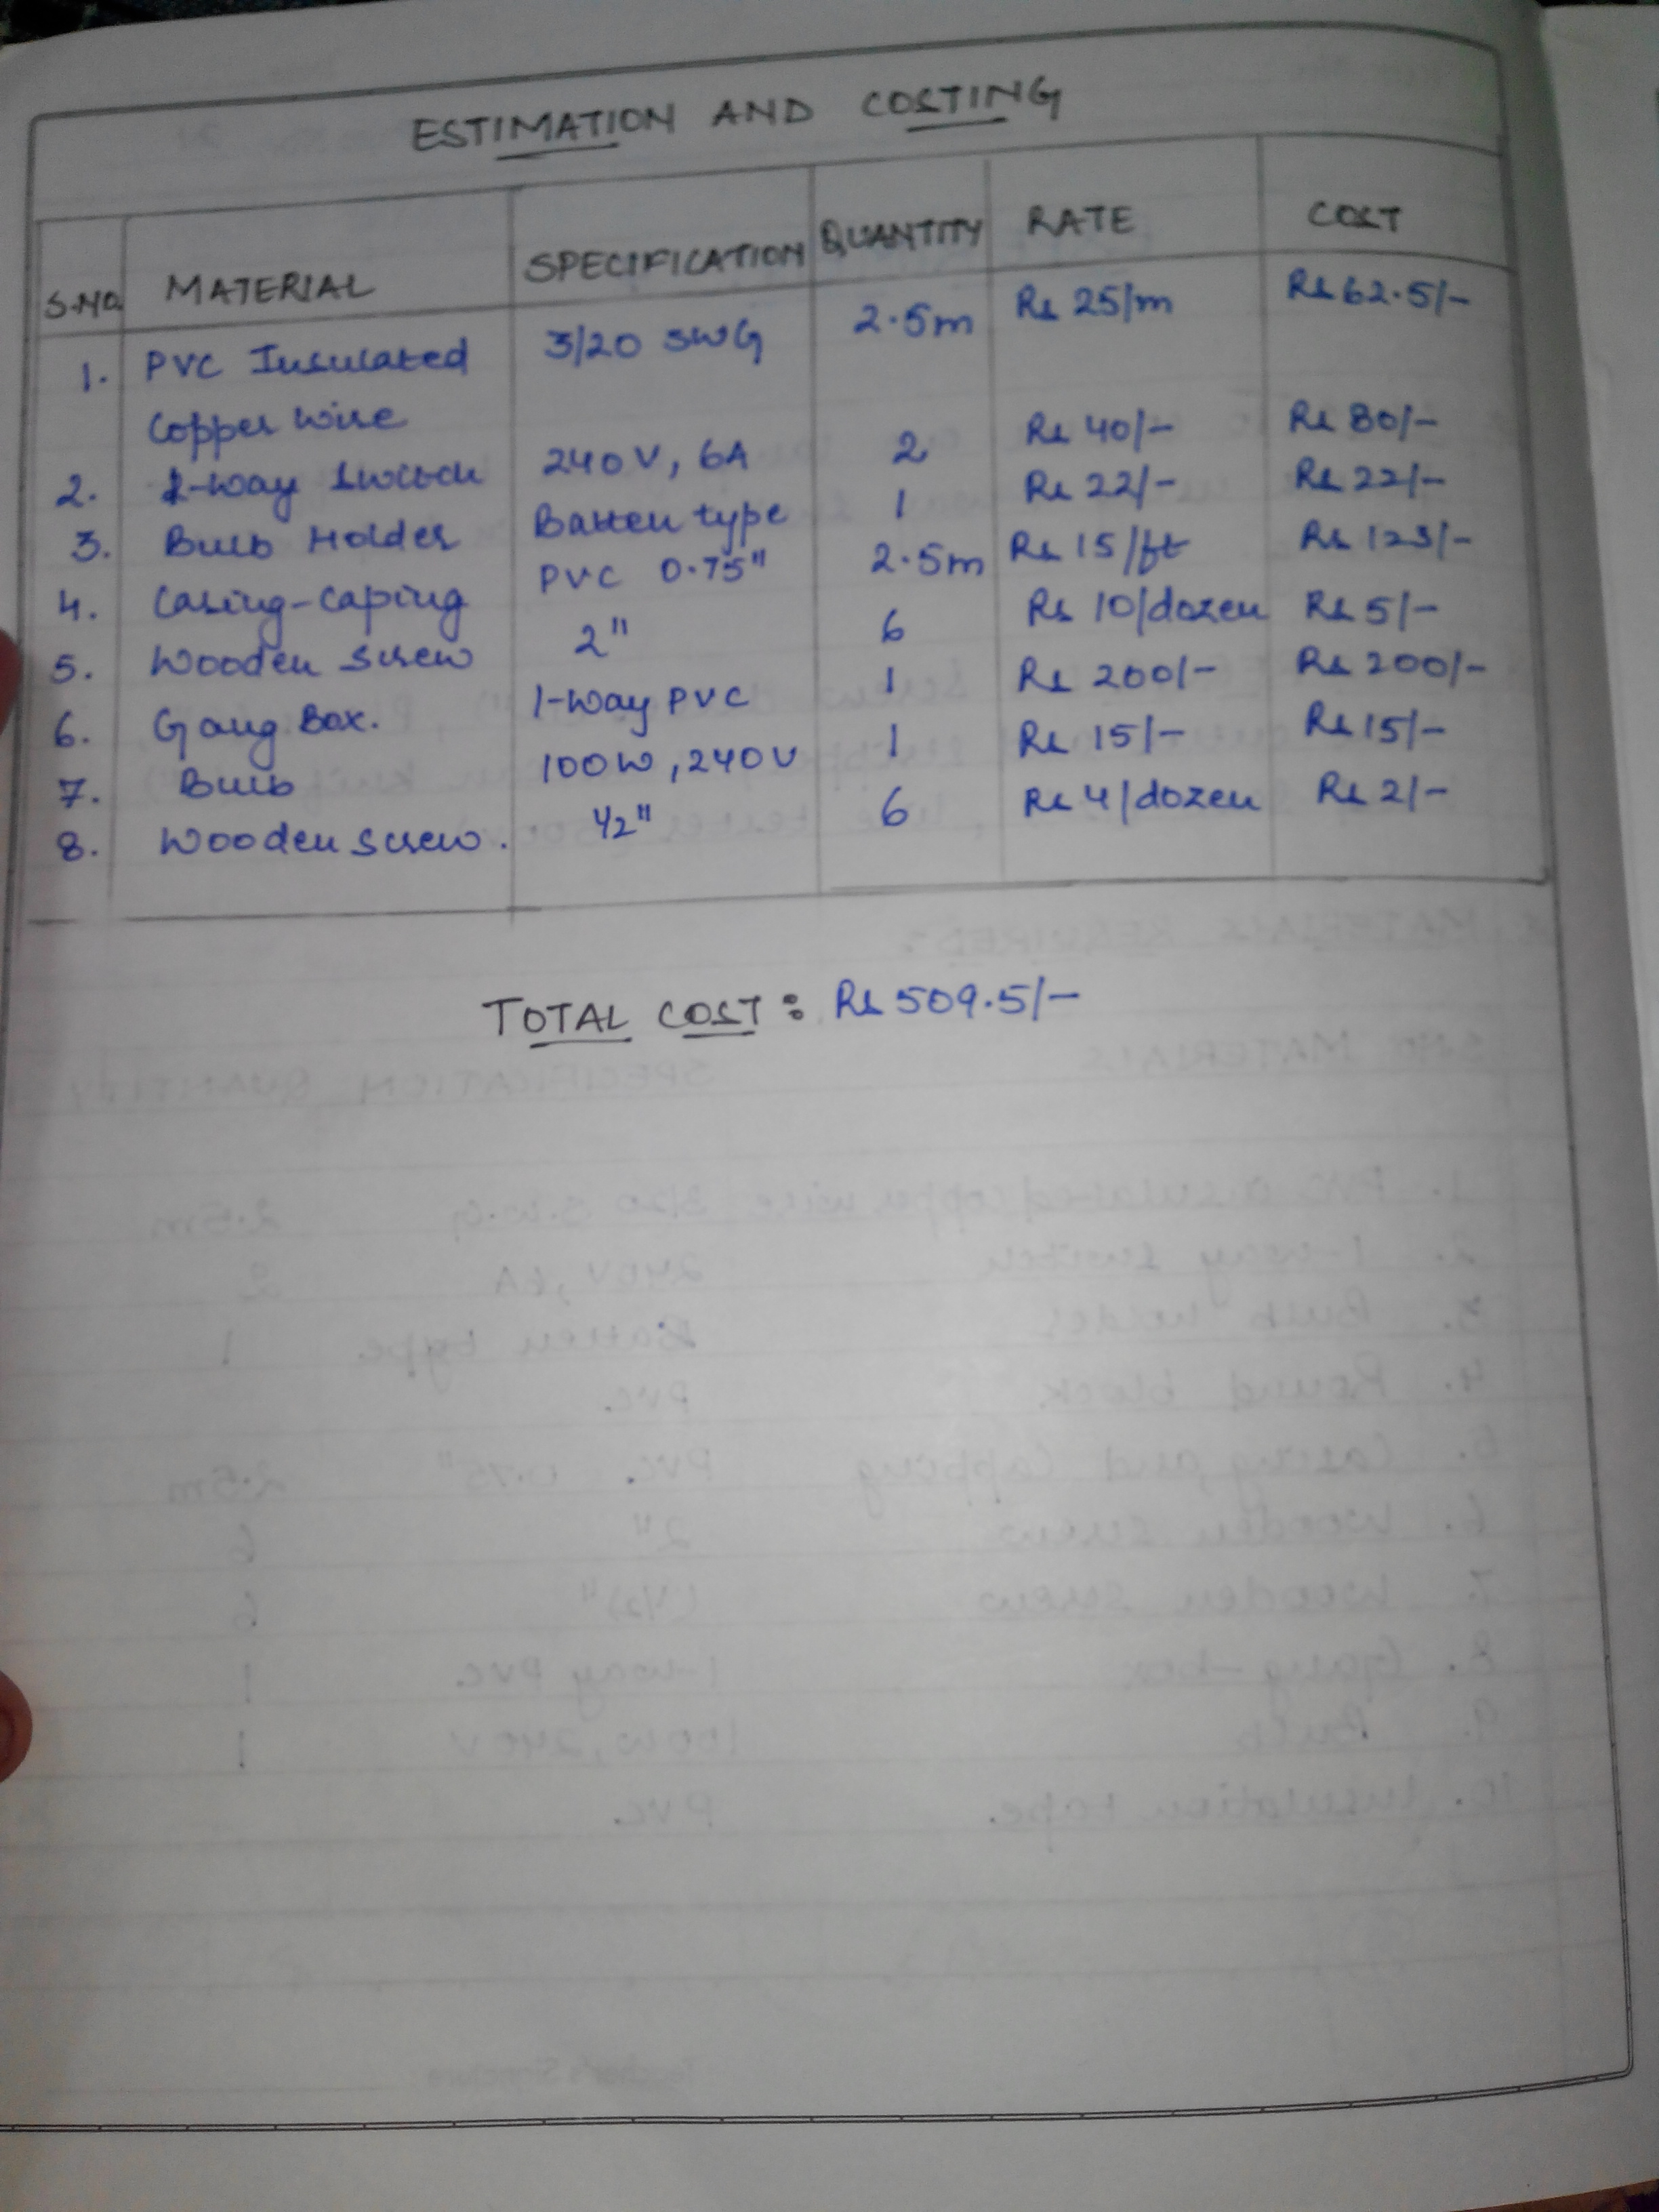 ESTIMATION AND COSTING
S.NO. MATERIAL SPECIFICATION QUANTITY RATE COST
1. PVC Insulated 3/20 SWG 2.5m Rs 25/m Rs 62.5/-
Copper wire
2. 1-way switch 240V, 6A 2 Rs 40/- Rs 80/-
3. Bulb Holder Batten type 1 Rs 22/- Rs 22/-
4. Casing-caping PVC 0.75" 2.5m Rs 15/ft Rs 123/-
5. Wooden screw 2" 6 Rs 10/dozen Rs 5/-
6. Gang Box. 1-way PVC 1 Rs 200/- Rs 200/-
7. Bulb 100W, 240V 1 Rs 15/- Rs 15/-
8. Wooden screw. 1/2" 6 Rs 4/dozen Rs 2/-
TOTAL COST: Rs 509.5/-